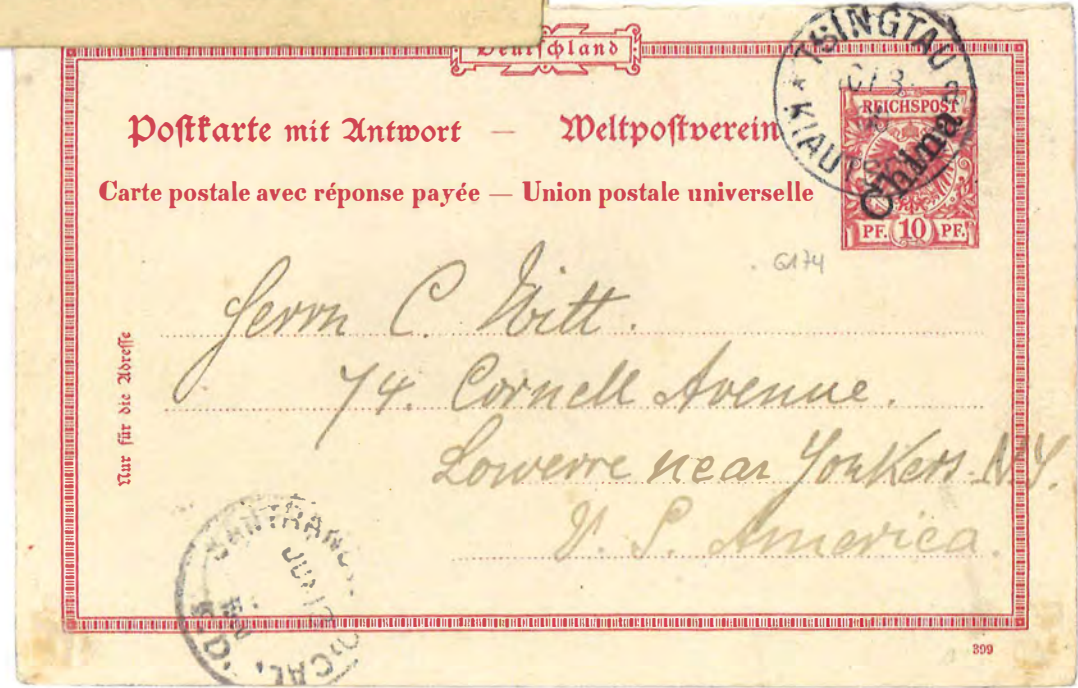 Deutschland
Postkarte mit Antwort — Weltpostverein
Carte postale avec réponse payée — Union postale universelle
TSINGTAU
KIAU
REICHSPOST
China
PF. 10 PF.
G174
Herrn C. Witt.
74. Cornell Avenue.
Lowerre near Yonkers. N.Y.
U. S. America.
Nur für die Adresse
JUN
CAL.
399